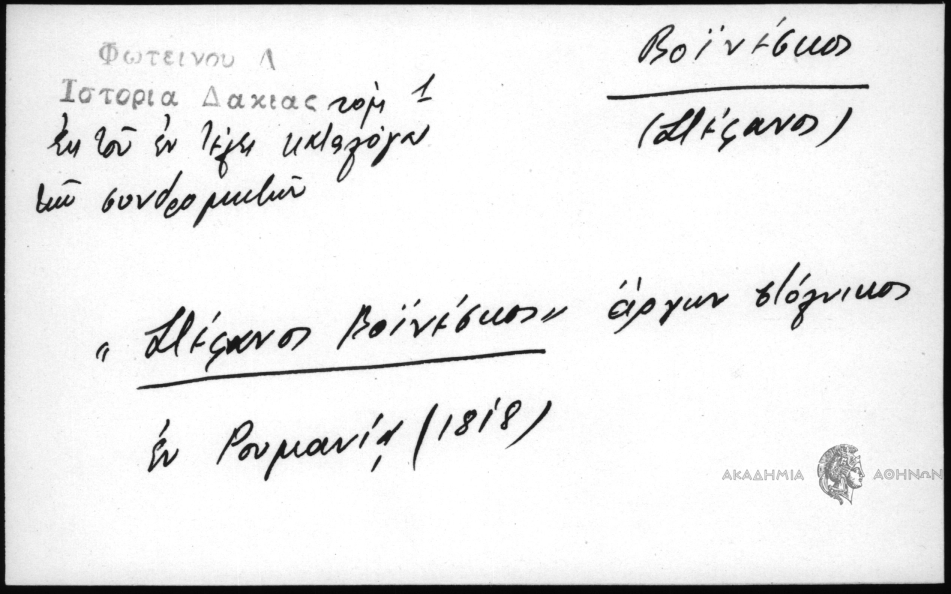 Φωτεινου Δ
Ιστορια Δακιας τομ 1
ἐκ τοῦ ἐν τέλει καταλόγου
τῶν συνδρομητῶν
Βοϊνέσκος
(Στέφανος)
"Στέφανος Βοϊνέσκος" ἄρχων στόλνικος
ἐν Ρουμανίᾳ (1818)
ΑΚΑΔΗΜΙΑ ΑΘΗΝΩΝ